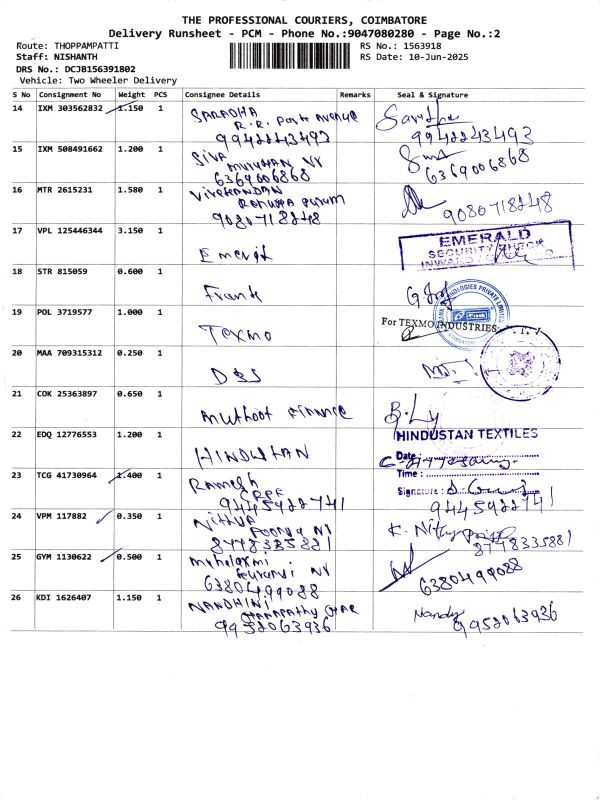 THE PROFESSIONAL COURIERS, COIMBATORE
Delivery Runsheet - PCM - Phone No.:9047080280 - Page No.:2
Route: THOPPAMPATTI
RS No.: 1563918
Staff: NISHANTH
RS Date: 10-Jun-2025
DRS No.: DCJB156391802
Vehicle: Two Wheeler Delivery
S No Consignment No Weight PCS Consignee Details Remarks Seal & Signature
14 IXM 303562832 1.150 1 SARADHA
R.R. Avenue
9942243493 9942243493
15 IXM 508491662 1.200 1 SIVA
6369006868 6369006868
16 MTR 2615231 1.580 1 Vivekandan
9080718248 9080718248
17 VPL 125446344 3.150 1 EMERALD
SECURITY CHECK
INWARD
18 STR 815059 0.600 1 Frank
19 POL 3719577 1.000 1 Texmo For TEXMO INDUSTRIES
20 MAA 709315312 0.250 1
21 COK 25363897 0.650 1 Muthoot Finance
22 EDQ 12776553 1.200 1 HINDUSTAN HINDUSTAN TEXTILES
Date:
Time:
23 TCG 41730964 1.400 1 Ramesh
CRPF Signature:
9445922741 9445922741
24 VPM 117882 0.350 1 Nithya
8778335881 8778335881
25 GYM 1130622 0.500 1 Mahalaxmi
6380499088 6380499088
26 KDI 1626407 1.150 1 NANDHINI Nandy
9952063936 9952063936